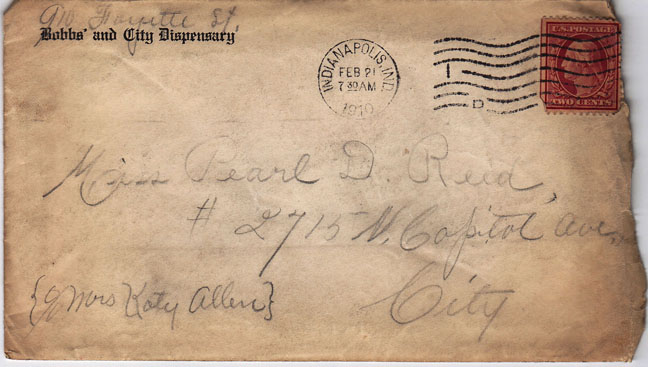 910 Fayette St.
Bobbs' and City Dispensary
INDIANAPOLIS, IND.
FEB 21
7 30 AM
1910
1
D
U.S. POSTAGE
TWO CENTS
Miss Pearl D. Reid,
# 2715 N. Capitol Ave,
{% Mrs Katy Allen}
City